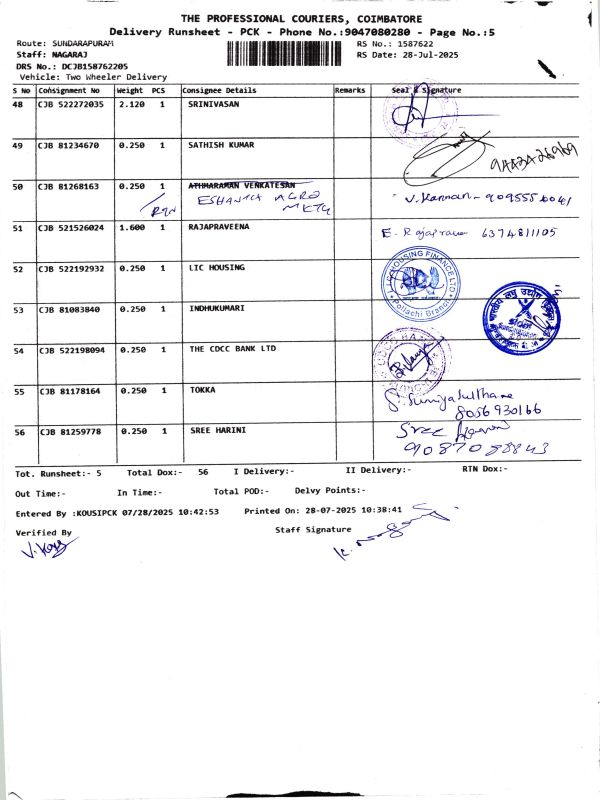 THE PROFESSIONAL COURIERS, COIMBATORE
Delivery Runsheet - PCK - Phone No.:9047080280 - Page No.:5
Route: SUNDARAPURAM RS No.: 1587622
Staff: NAGARAJ RS Date: 28-Jul-2025
DRS No.: DCJB158762205
Vehicle: Two Wheeler Delivery
S No Consignment No Weight PCS Consignee Details Remarks Seal & Signature
48 CJB 522272035 2.120 1 SRINIVASAN
49 CJB 81234670 0.250 1 SATHISH KUMAR
50 CJB 81268163 0.250 1 ATHMARAMAN VENKATESAN
ESHANYA AGRO V. Kannan - 9095550041
MKTG
51 CJB 521526024 1.600 1 RAJAPRAVEENA E. Rajaprave 6374811105
52 CJB 522192932 0.250 1 LIC HOUSING
LIC HOUSING FINANCE LTD
Pollachi Branch
53 CJB 81083840 0.250 1 INDHUKUMARI
54 CJB 522198094 0.250 1 THE CDCC BANK LTD
55 CJB 81178164 0.250 1 TOKKA
8056930166
56 CJB 81259778 0.250 1 SREE HARINI Sree
9087088843
Tot. Runsheet:- 5 Total Dox:- 56 I Delivery:- II Delivery:- RTN Dox:-
Out Time:- In Time:- Total POD:- Delvy Points:-
Entered By :KOUSIPCK 07/28/2025 10:42:53 Printed On: 28-07-2025 10:38:41
Verified By Staff Signature